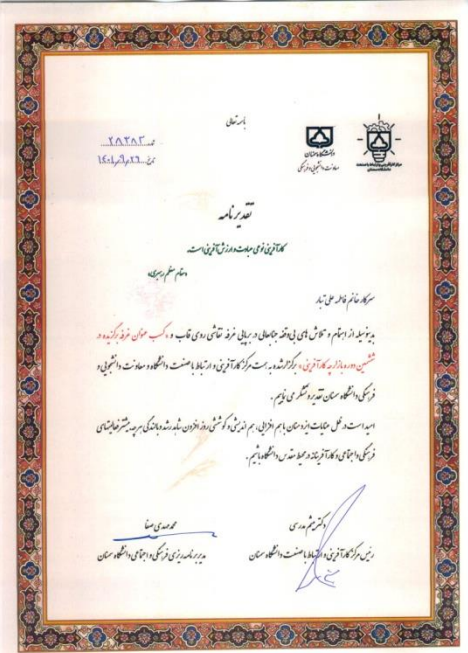 باسمه تعالی
دانشگاه سمنان
معاونت دانشجویی و فرهنگی
مرکز کارآفرینی و ارتباط با صنعت
دانشگاه سمنان
۲۸۲۸۳
تقدیرنامه
کارآفرینی نوعی عبادت و ارزش آفرینی است.
«مقام معظم رهبری»
سرکار خانم فاطمه علی تبار
بدینوسیله از اهتمام و تلاش های بی وقفه جنابعالی در برپایی غرفه نقاشی روی قاب و «کسب عنوان غرفه برگزیده در
ششمین دوره بازارچه کارآفرینی» برگزار شده به همت مرکز کارآفرینی و ارتباط با صنعت دانشگاه و معاونت دانشجویی و
فرهنگی دانشگاه سمنان تقدیر و تشکر می نماییم.
امید است در ظل عنایات ایزدمنان با هم افزایی، هم اندیشی و کوششی روز افزون شاهد رشد و بالندگی هر چه بیشتر فعالیتهای
فرهنگی و اجتماعی و کارآفرینانه در محیط مقدس دانشگاه باشیم.
دکتر میثم مدرسی
رئیس مرکز کارآفرینی و ارتباط با صنعت دانشگاه سمنان
محمد مهدی صفا
مدیر برنامه ریزی فرهنگی و اجتماعی دانشگاه سمنان